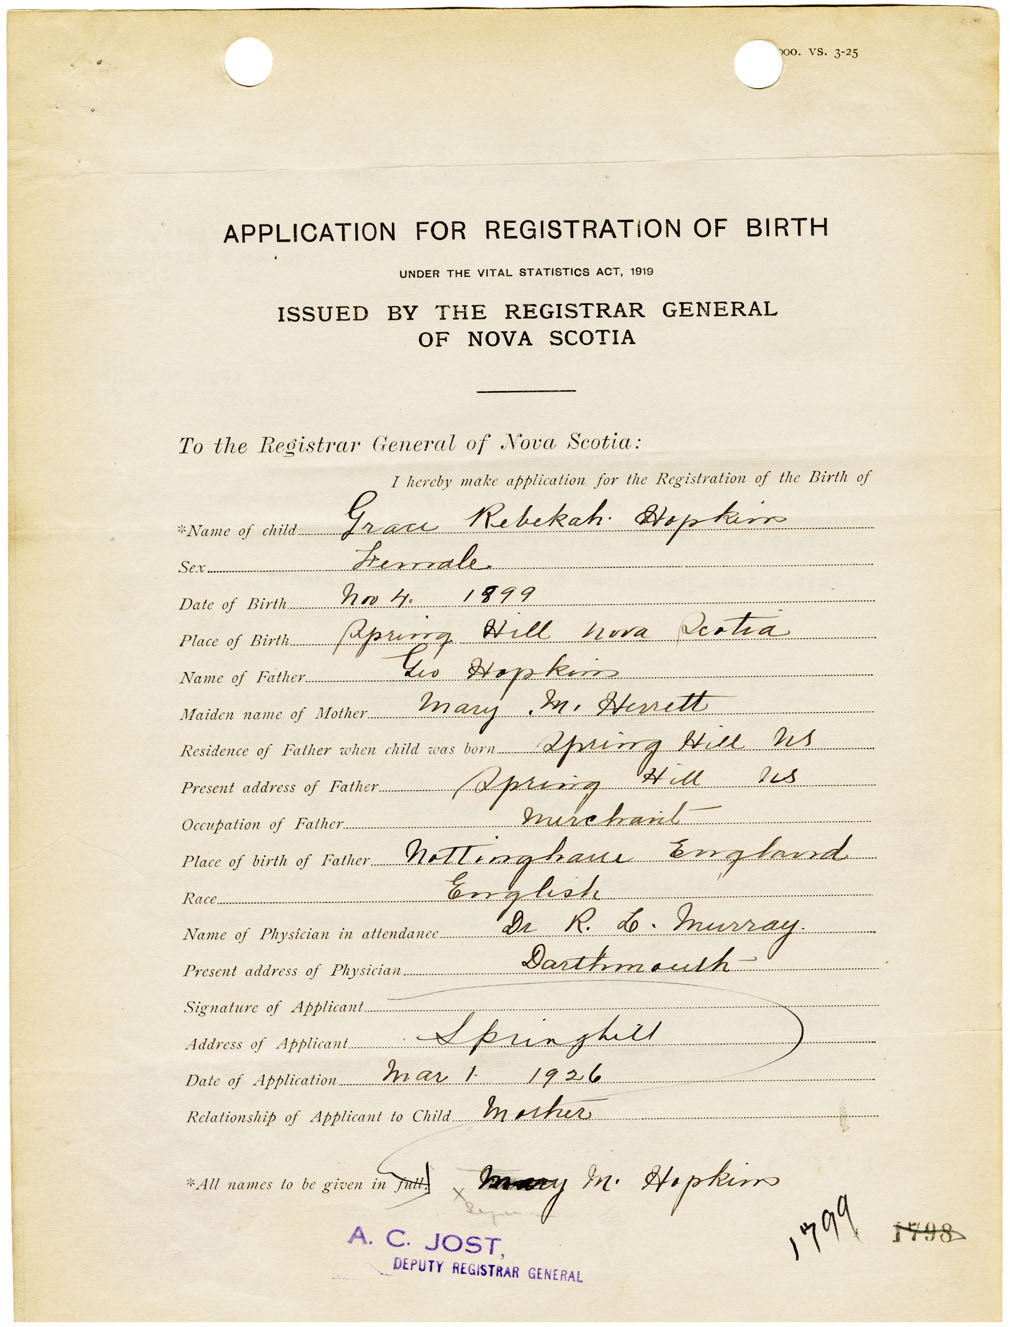 000. VS. 3-25
APPLICATION FOR REGISTRATION OF BIRTH
UNDER THE VITAL STATISTICS ACT, 1919
ISSUED BY THE REGISTRAR GENERAL
OF NOVA SCOTIA
To the Registrar General of Nova Scotia:
I hereby make application for the Registration of the Birth of
*Name of child Grace Rebekah Hopkins
Sex Female
Date of Birth Nov 4. 1899
Place of Birth Spring Hill Nova Scotia
Name of Father Geo Hopkins
Maiden name of Mother Mary M. Herrett
Residence of Father when child was born Spring Hill NS
Present address of Father Spring Hill NS
Occupation of Father Merchant
Place of birth of Father Nottinghame England
Race English
Name of Physician in attendance Dr R. L. Murray.
Present address of Physician Darthmouth
Signature of Applicant
Address of Applicant Springhill
Date of Application Mar 1 1926
Relationship of Applicant to Child Mother
*All names to be given in full. Mary M. Hopkins
x
1799 1798
A. C. JOST,
DEPUTY REGISTRAR GENERAL